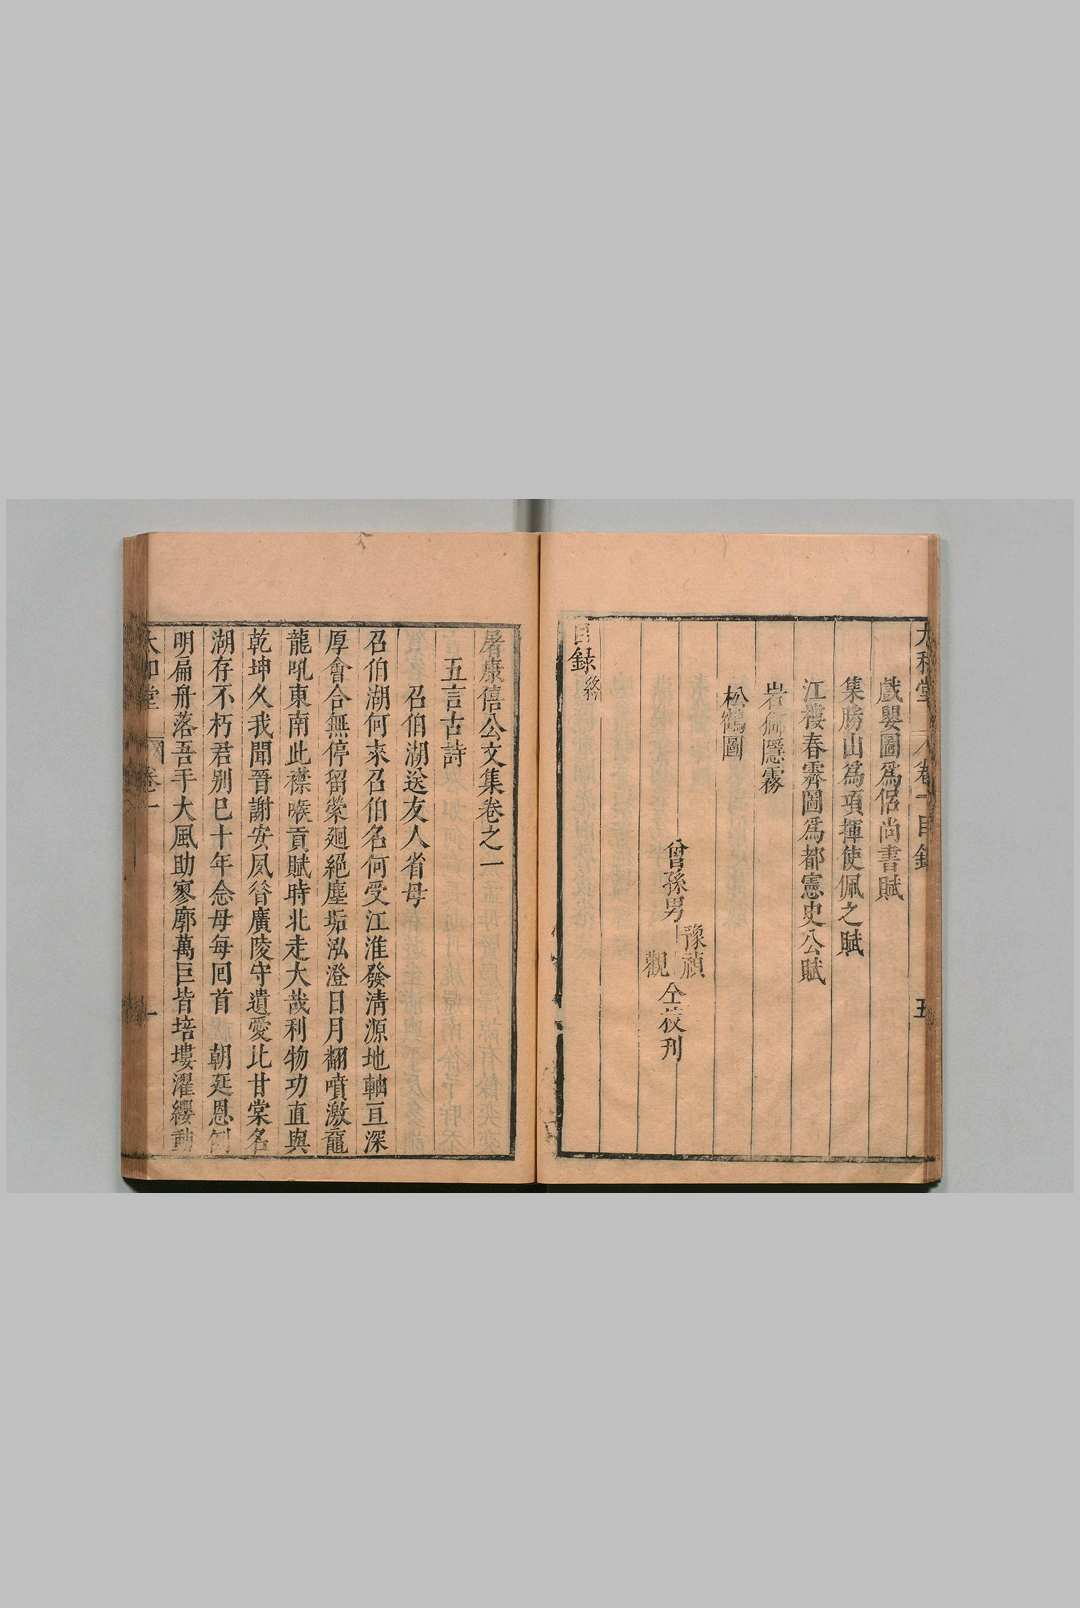 太和堂 卷一目錄 五
戲嬰圖為侶尚書賦
集勝山為項揮使佩之賦
江樓春霽圖為都憲史公賦
岩 隱霧
松鶴圖
曾孫男 豫禎 觀 仝校刊
目錄終
屠康僖公文集卷之一
五言古詩
召伯湖送友人省母
召伯湖何來召伯名何受江淮發清源地軸亘深
厚會合無停留縈迴絕塵垢泓澄日月翻噴激黿
龍吼東南此襟喉貢賦時北走大哉利物功直與
乾坤久我聞晉謝安夙昝廣陵守遺愛比甘棠名
湖存不朽君别已十年念母每回首 朝廷恩例
明扁舟落吾手大風助寥廓萬巨皆培塿濯纓動
太和堂 卷一 一